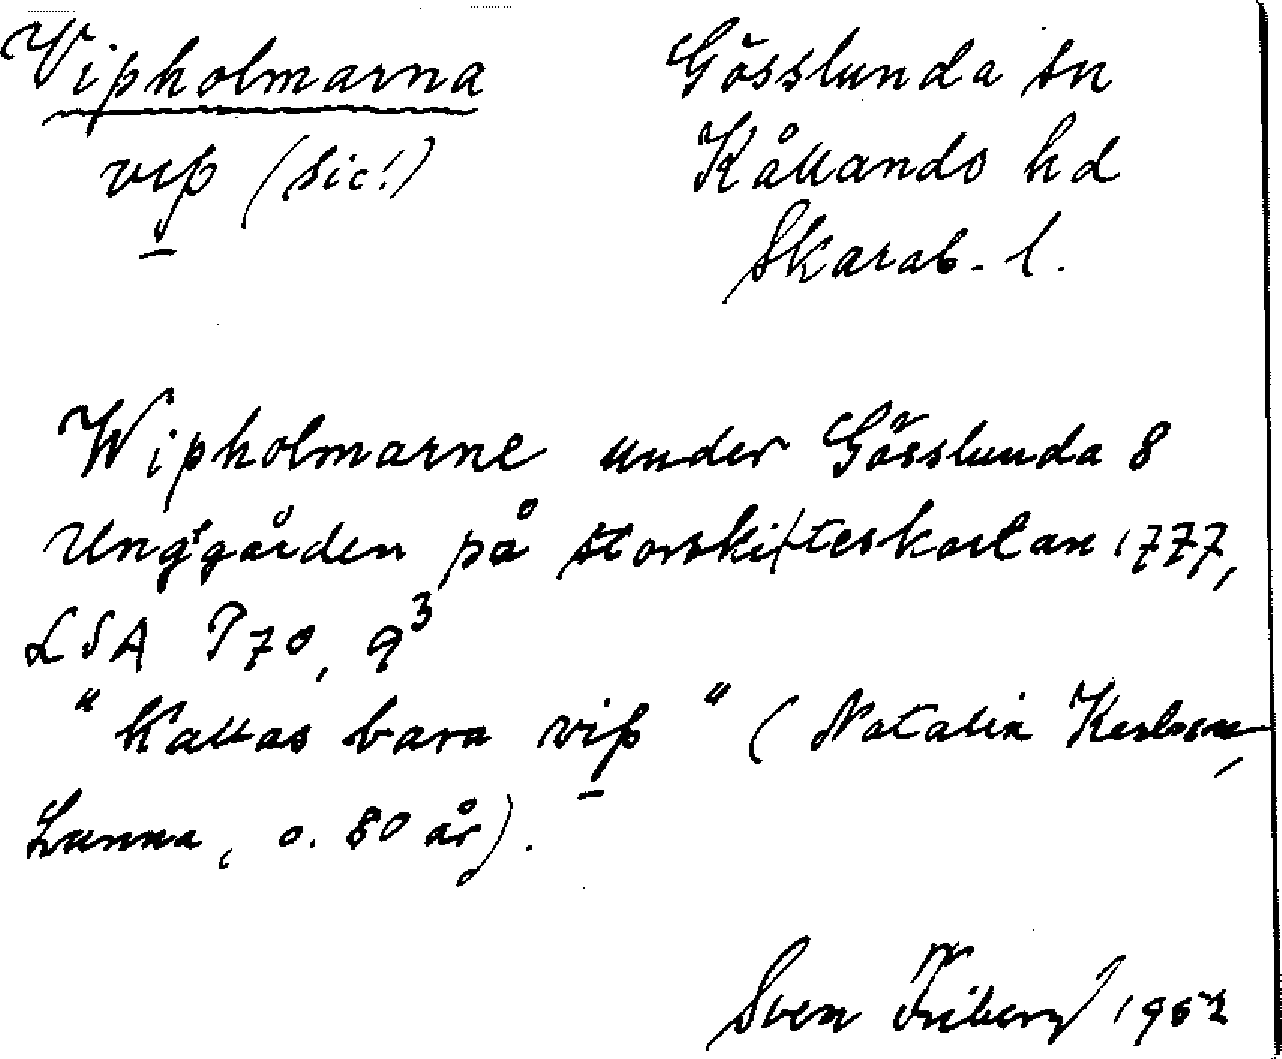 Vipholmarna
vip (sic!)
Gösslunda sn
Kållands hd
Skarab. l.
Wipholmarne under Gösslunda 8
Unggården på storskifteskartan 1777,
LSA P70, 9³
"Kallas bara vip" (Natalia Karlsson,
Lunna, o. 80 år).
Sven Friberg 1952